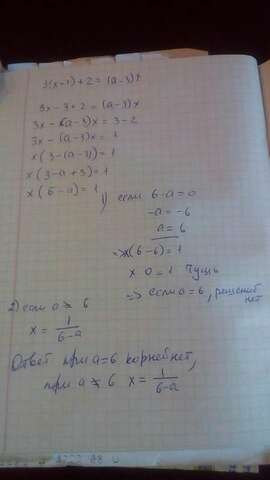 3(x-1)+2=(a-3)x
3x-3+2=(a-3)x
3x-(a-3)x=3-2
3x-(a-3)x=1
x(3-(a-3))=1
x(3-a+3)=1
x(6-a)=1
1) если 6-a=0
-a=-6
a=6
=>x(6-6)=1
x 0=1 чушь
=> если a=6, решений нет
2) если a≠6
x=1/(6-a)
Ответ при a=6 корней нет,
при a≠6 x=1/(6-a)